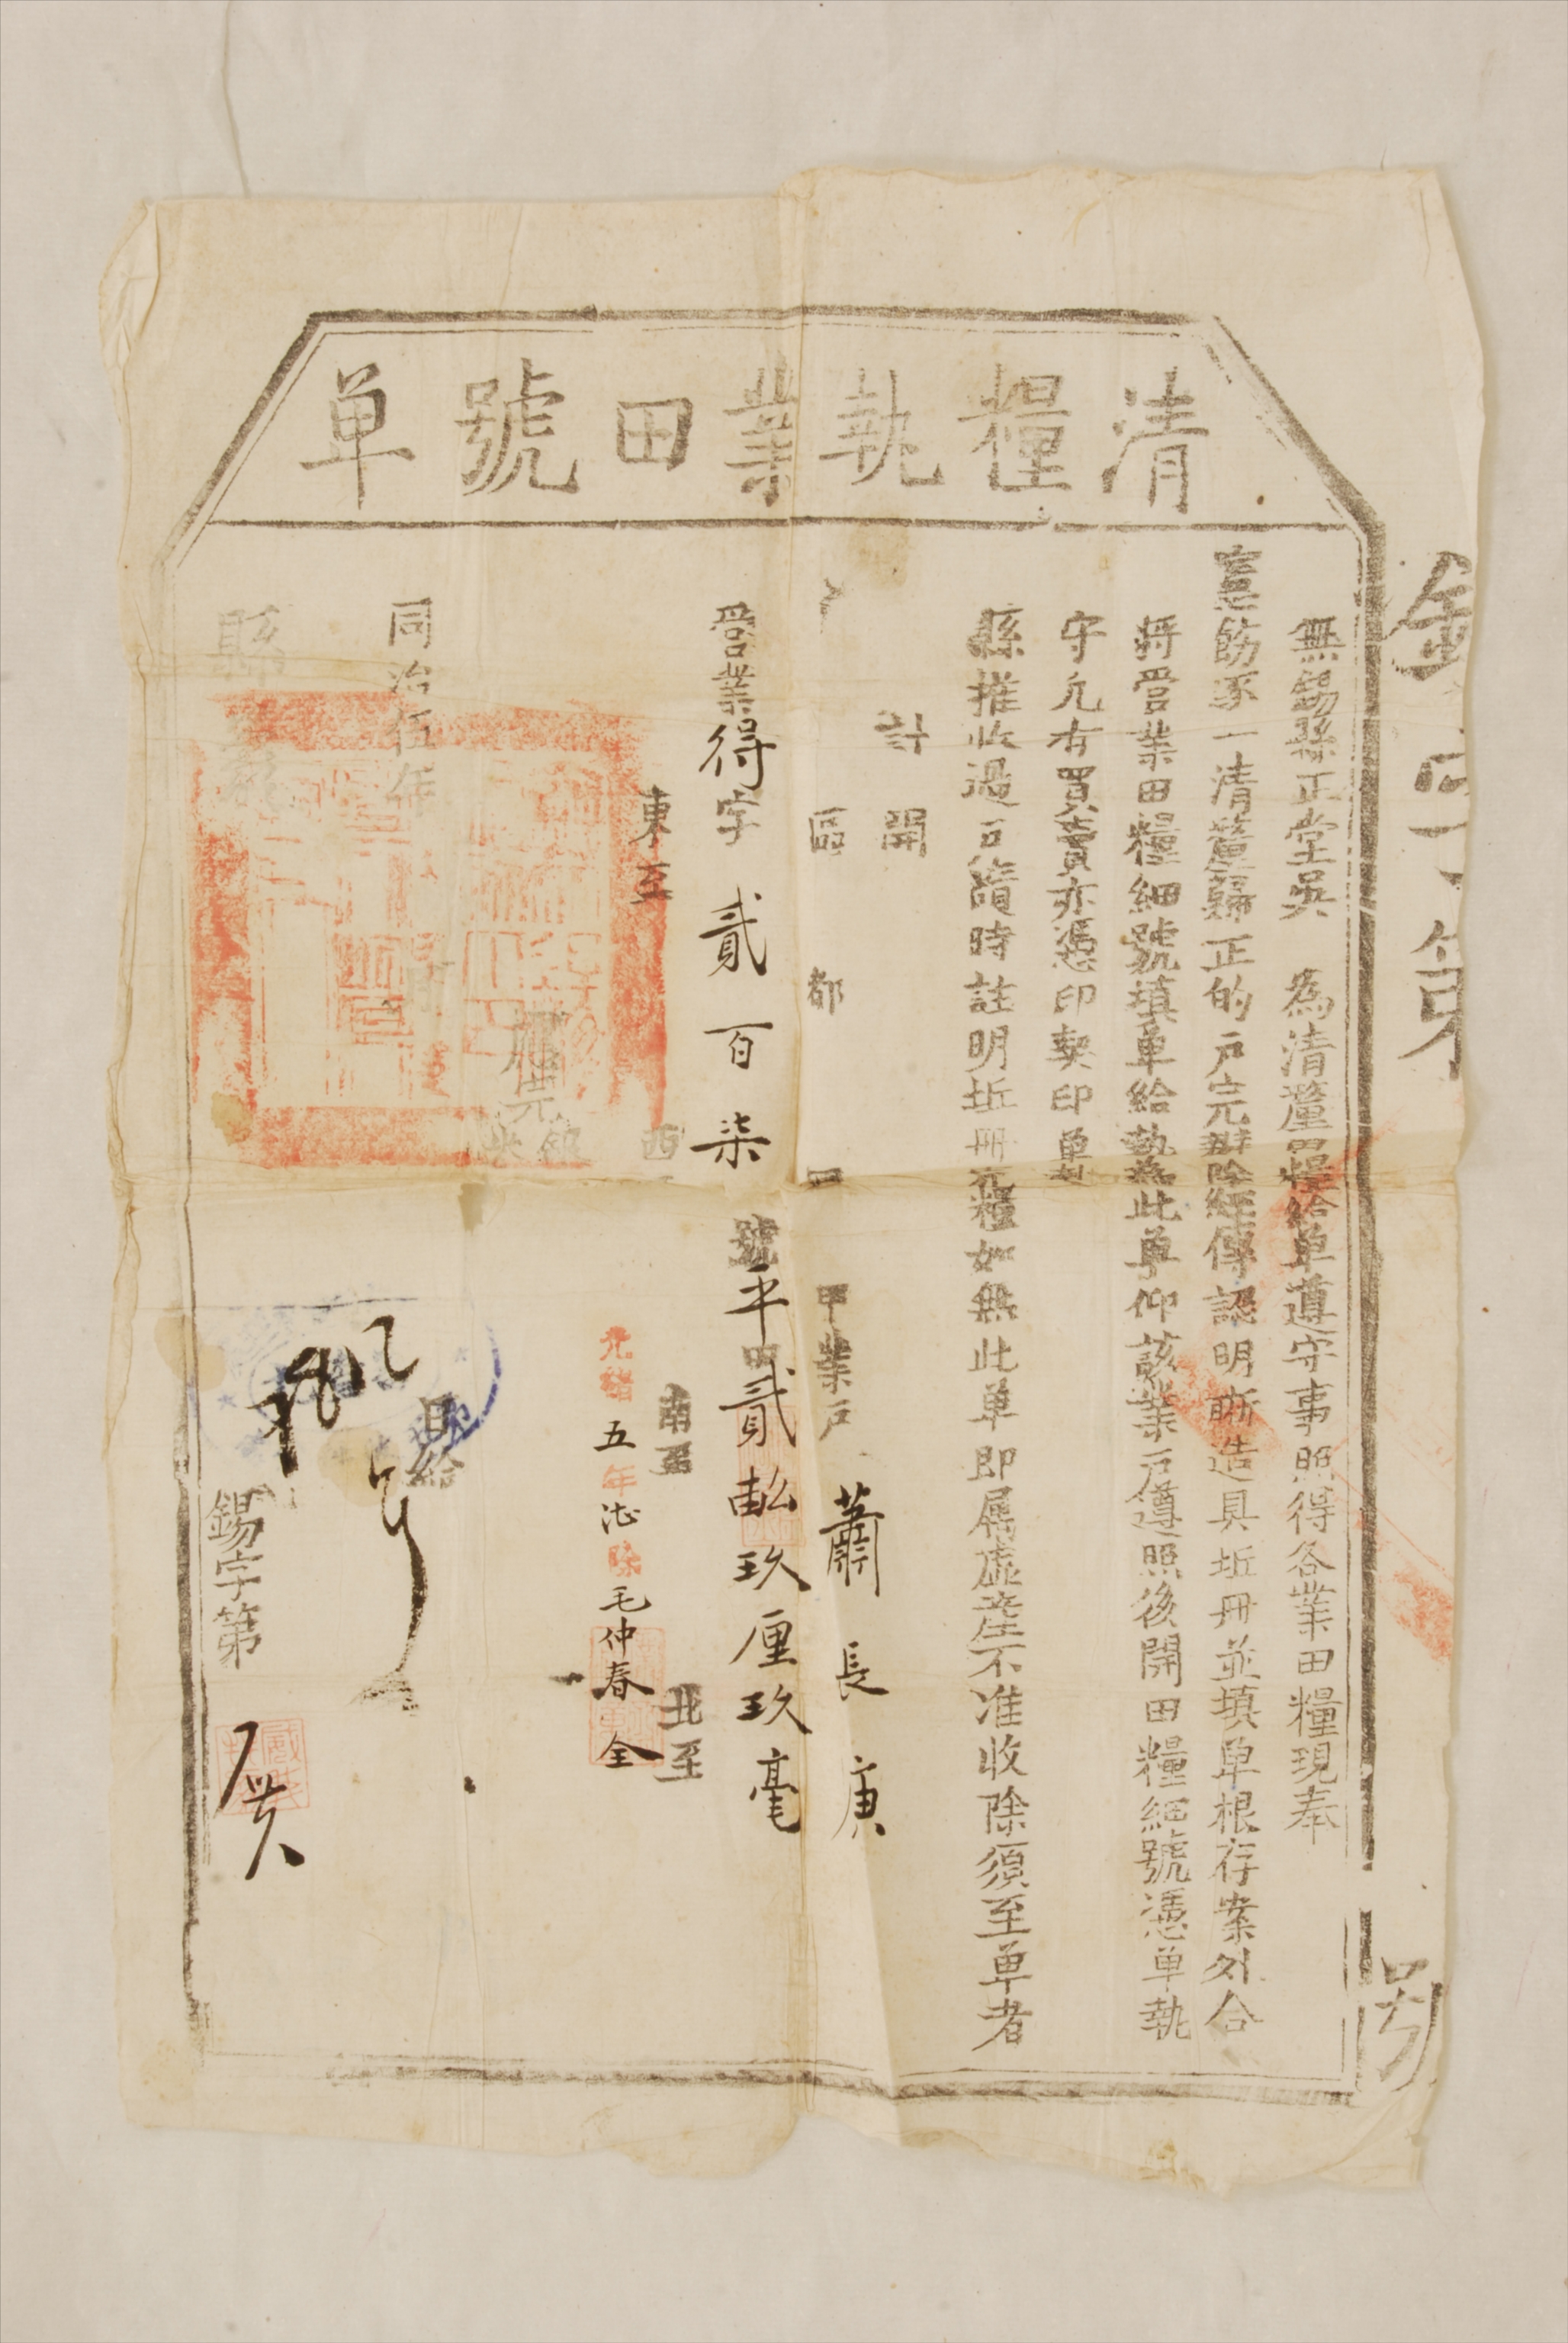 清糧執業田號單
錫字第
無錫縣正堂吳 為清釐田糧給單遵守事照得各業田糧現奉
憲飭逐一清釐歸正的戶完辦除經傳認明晰造具坵冊並填單根存案外合
將營業田糧細號填單給執為此單仰該業戶遵照後開田糧細號憑單執
守凢有買賣亦憑印契印單赴
縣推收過戶隨時註明坵冊完糧如無此单即屬虛產不准收除須至單者
計開
區 都 甲業戶 蕭長庚
營業得字貳百柒 號平田貳畝玖厘玖毫
東至 西 南至 北至
光緒五年 除毛仲春仝
同治伍年
日給
縣
錫字第